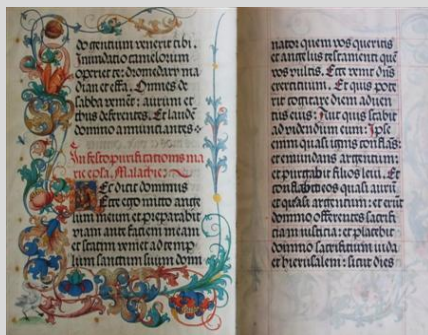 do gentium venerit tibi.
Inundatio camelorum
operiet te: dromedarÿ ma
dian et effa. Omnes de
sabba venient: aurum et
thus deferentes. Et laudē
domino annunciantes
In festo purificationis ma
rie ep̄la. Malachie:
Hec dicit dominus
Ecce ego mitto ange
lum meum et preparabit
viam ante faciem meam
et statim veniet ad temp
lum sanctum suum domi
nator quem vos queritis
et angelus testamenti quē
vos vultis. Ecce venit dn̄s
exercituum. Et quis pote
rit cogitare diem aduen
tus eius: Aut quis stabit
ad videndum eum: Ipse
enim quasi ignis conflās:
et emundans argentum:
et purgabit filios leui. Et
conflabit eos quasi aurū
et quasi argentum: et erūt
domino offerentes sacrifi
cia in iusticia: et placebit
domino sacrificium iuda
et hierusalem: sicut dies